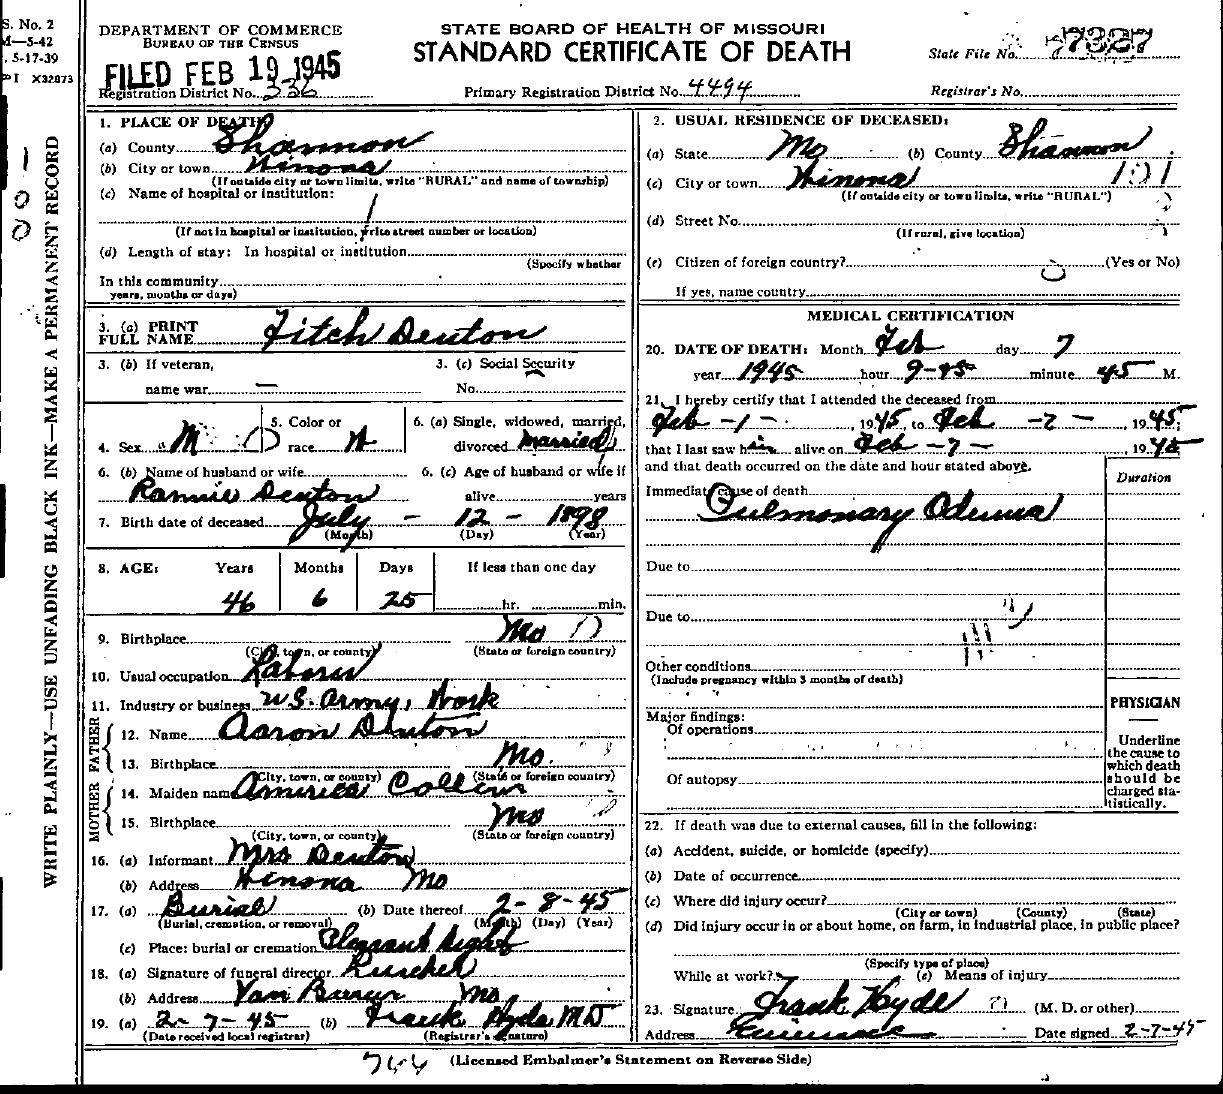 S. No. 2
M—5-42
5-17-39
X32873
WRITE PLAINLY—USE UNFADING BLACK INK—MAKE A PERMANENT RECORD
1
0
0
DEPARTMENT OF COMMERCE
BUREAU OF THE CENSUS
FILED FEB 19 1945
Registration District No. 336
STATE BOARD OF HEALTH OF MISSOURI
STANDARD CERTIFICATE OF DEATH
Primary Registration District No. 4494
State File No. 7327
Registrar's No.
1. PLACE OF DEATH:
(a) County Shannon
(b) City or town Winona
(If outside city or town limits, write "RURAL" and name of township)
(c) Name of hospital or institution:
(If not in hospital or institution, write street number or location)
(d) Length of stay: In hospital or institution
(Specify whether
In this community
years, months or days)
3. (a) PRINT FULL NAME Fitch Denton
3. (b) If veteran, name war —
3. (c) Social Security No.
4. Sex M
5. Color or race W
6. (a) Single, widowed, married, divorced Married
6. (b) Name of husband or wife Rannie Denton
6. (c) Age of husband or wife if alive years
7. Birth date of deceased July - 12 - 1898
(Month) (Day) (Year)
8. AGE: Years Months Days If less than one day
46 6 25 hr. min.
9. Birthplace Mo
(City, town, or county) (State or foreign country)
10. Usual occupation Laborer
11. Industry or business U.S. Army, Work
FATHER
12. Name Aaron Denton
13. Birthplace Mo.
(City, town, or county) (State or foreign country)
MOTHER
14. Maiden name America Collins
15. Birthplace Mo
(City, town, or county) (State or foreign country)
16. (a) Informant Mrs Denton
(b) Address Winona Mo
17. (a) Burial (b) Date thereof 2-8-45
(Burial, cremation, or removal) (Month) (Day) (Year)
(c) Place: burial or cremation Pleasant
18. (a) Signature of funeral director
(b) Address Van Buren Mo
19. (a) 2-7-45 (b) Frank Hyde MD
(Date received local registrar) (Registrar's signature)
2. USUAL RESIDENCE OF DECEASED:
(a) State Mo (b) County Shannon
(c) City or town Winona 101
(If outside city or town limits, write "RURAL")
(d) Street No.
(If rural, give location)
(e) Citizen of foreign country? (Yes or No)
If yes, name country
MEDICAL CERTIFICATION
20. DATE OF DEATH: Month Feb day 7
year 1945 hour 9-45 minute 45 M.
21. I hereby certify that I attended the deceased from
Feb -1-, 1945, to Feb -7-, 1945;
that I last saw him alive on Feb -7-, 1945
and that death occurred on the date and hour stated above.
Duration
Immediate cause of death
Pulmonary Odema
Due to
Due to
Other conditions
(Include pregnancy within 3 months of death)
Major findings:
Of operations
Of autopsy
PHYSICIAN
Underline the cause to which death should be charged statistically.
22. If death was due to external causes, fill in the following:
(a) Accident, suicide, or homicide (specify)
(b) Date of occurrence
(c) Where did injury occur?
(City or town) (County) (State)
(d) Did injury occur in or about home, on farm, in industrial place, in public place?
(Specify type of place)
While at work? (e) Means of injury
23. Signature Frank Hyde (M. D. or other)
Address Eminence Date signed 2-7-45
(Licensed Embalmer's Statement on Reverse Side)